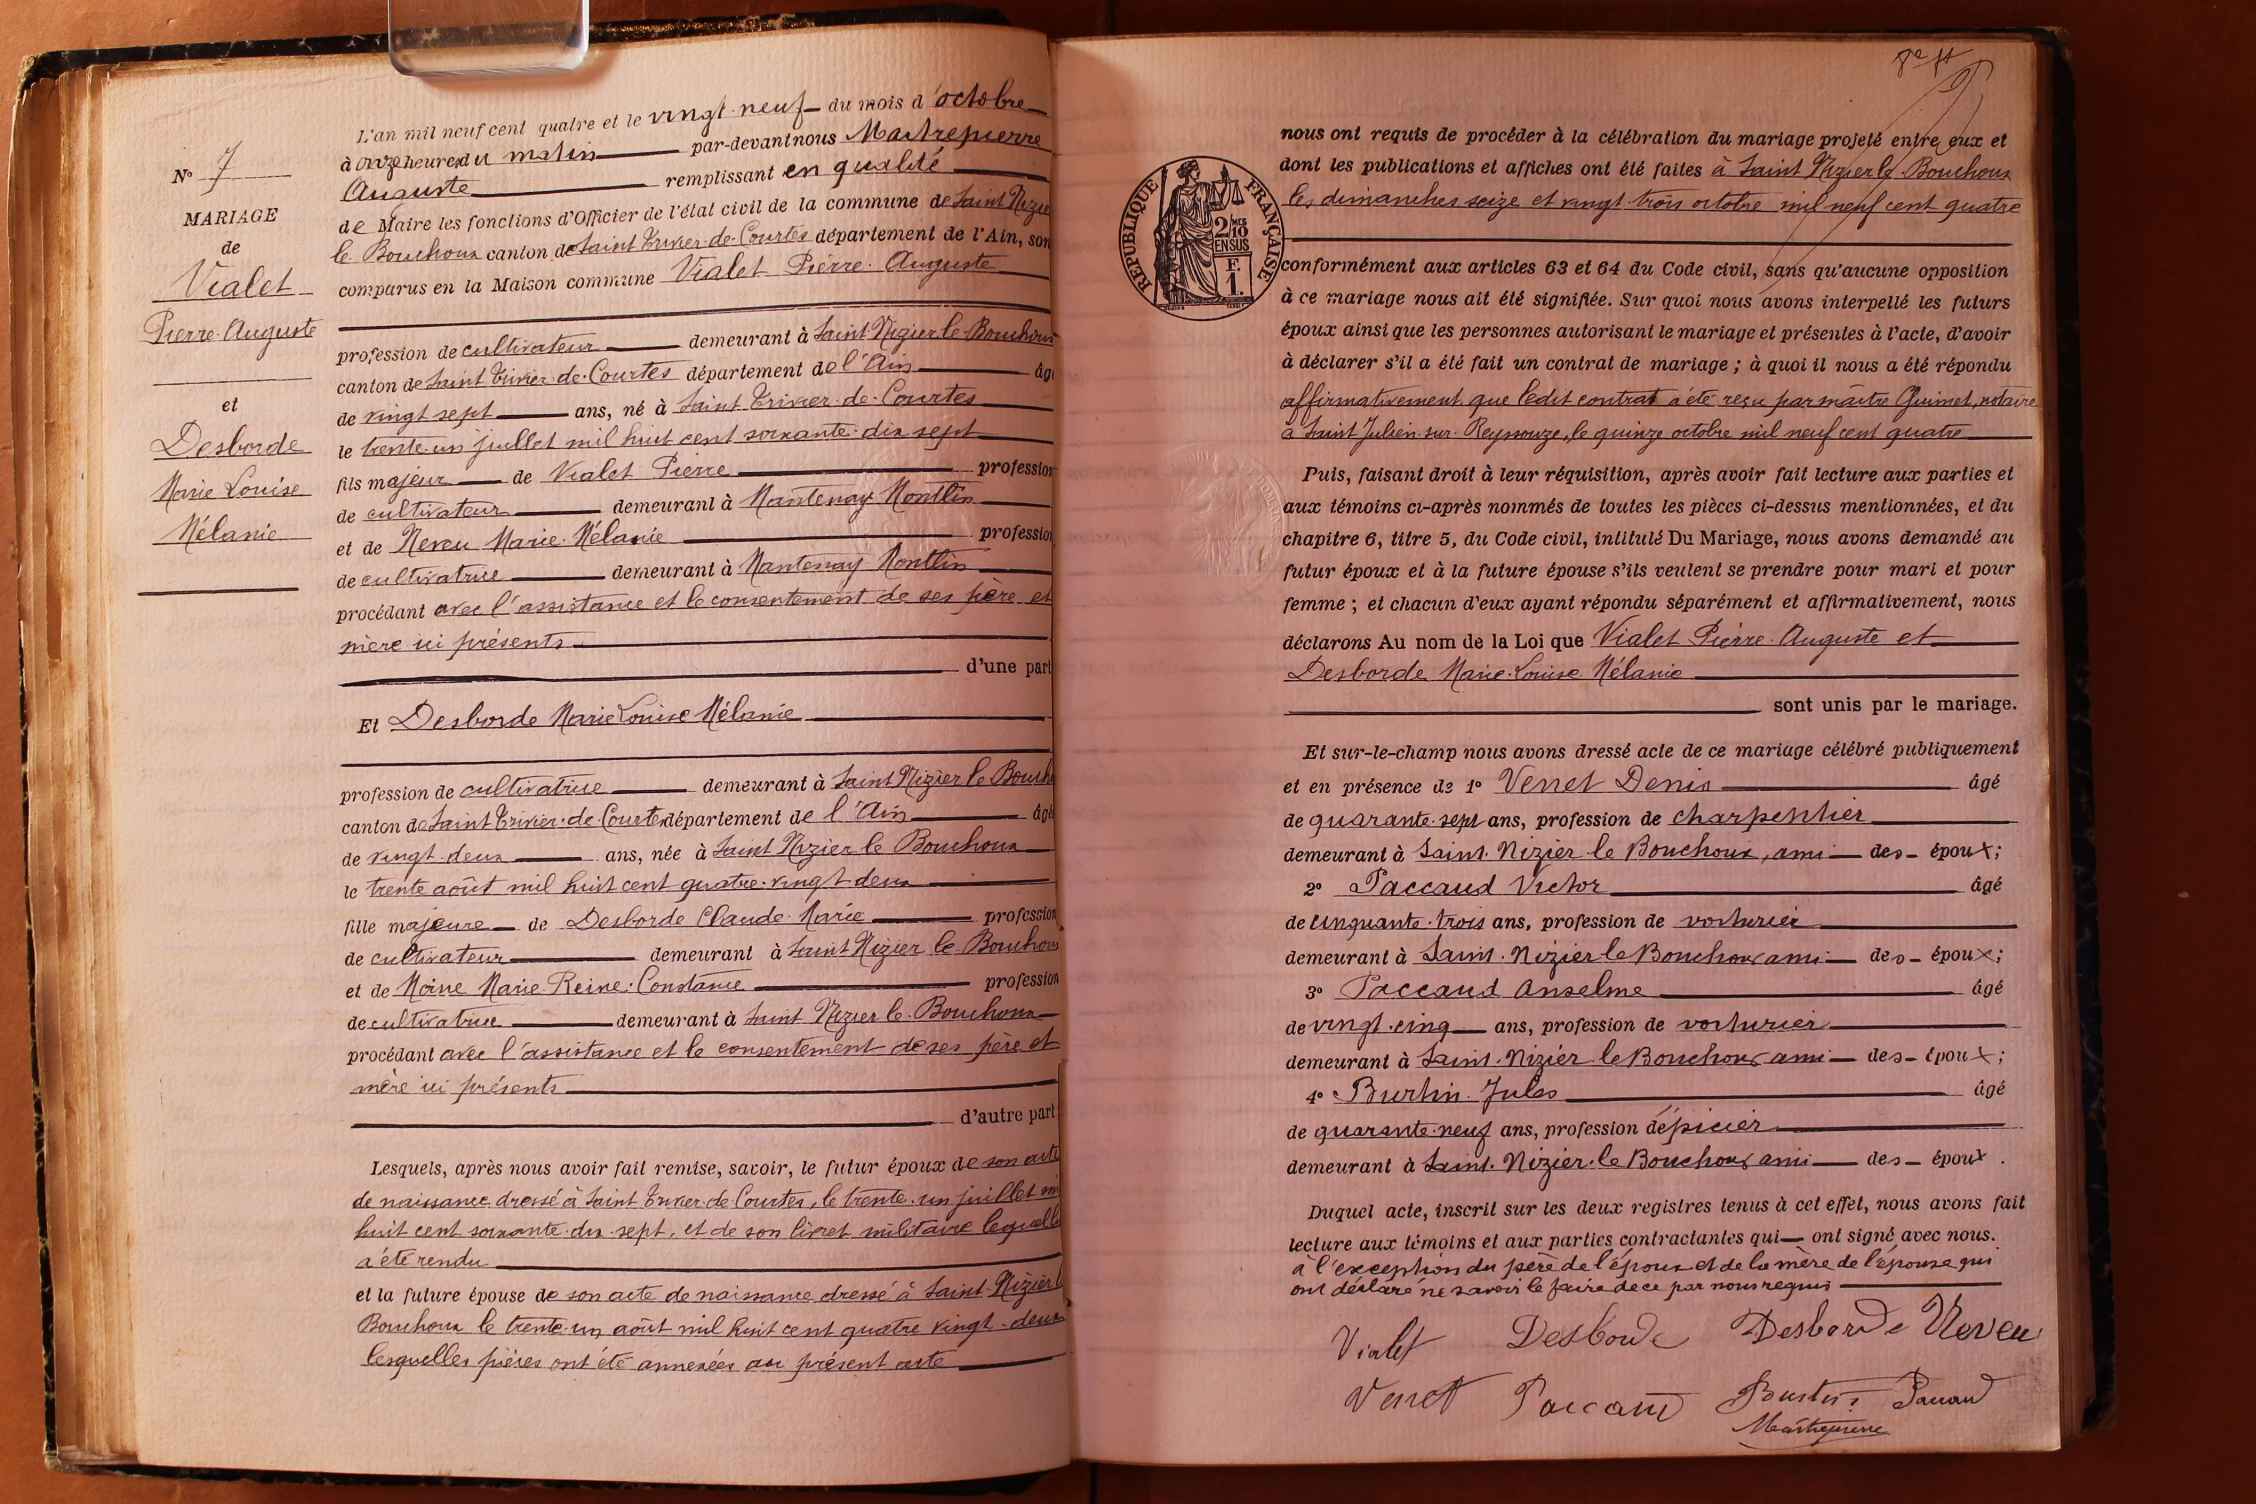 L'an mil neuf cent quatre et le vingt-neuf du mois d'octobre
à onze heures du matin par-devant nous Maitrepierre
Auguste remplissant en qualité
de Maire les fonctions d'Officier de l'état civil de la commune de Saint Nizie
le Bouchoux canton de Saint Trivier-de-Courtes département de l'Ain, son
comparus en la Maison commune Vialet Pierre-Auguste
profession de cultivateur demeurant à Saint Nizier le Bouchoux
canton de Saint Trivier-de-Courtes département de l'Ain âg
de vingt sept ans, né à Saint Trivier-de-Courtes
le trente-un juillet mil huit cent soixante-dix sept
fils majeur de Vialet Pierre profession
de cultivateur demeurant à Mantenay Montlin
et de Neveu Marie-Mélanie profession
de cultivatrice demeurant à Mantenay Montlin
procédant avec l'assistance et le consentement de ses père et
mère ici présents
d'une part
Et Desborde Marie Louise Mélanie
profession de cultivatrice demeurant à Saint Nizier le Bouch
canton de Saint Trivier-de-Courtes département de l'Ain âgé
de vingt-deux ans, née à Saint Nizier le Bouchoux
le trente août mil huit cent quatre-vingt-deux
fille majeure de Desborde Claude-Marie profession
de cultivateur demeurant à Saint Nizier le Bouchoux
et de Moine Marie-Reine-Constance profession
de cultivatrice demeurant à Saint Nizier le Bouchoux
procédant avec l'assistance et le consentement de ses père et
mère ici présents
d'autre part
Lesquels, après nous avoir fait remise, savoir, le futur époux de son acte
de naissance dressé à Saint Trivier-de-Courtes, le trente-un juillet mi
huit cent soixante-dix-sept, et de son livret militaire lequel lu
a été rendu
et la future épouse de son acte de naissance dressé à Saint-Nizier l
Bouchoux le trente-un août mil huit cent quatre vingt-deux
lesquelles pièces ont été annexées au présent acte
No 7
MARIAGE
de
Vialet
Pierre-Auguste
et
Desborde
Marie Louise
Mélanie
REPUBLIQUE FRANÇAISE
2 MES
10
EN SUS
F.
1.
nous ont requis de procéder à la célébration du mariage projeté entre eux et
dont les publications et affiches ont été faites à Saint Nizier le Bouchoux
les dimanches seize et vingt-trois octobre mil neuf cent quatre
conformément aux articles 63 et 64 du Code civil, sans qu'aucune opposition
à ce mariage nous ait été signifiée. Sur quoi nous avons interpellé les futurs
époux ainsi que les personnes autorisant le mariage et présentes à l'acte, d'avoir
à déclarer s'il a été fait un contrat de mariage ; à quoi il nous a été répondu
affirmativement que ledit contrat a été reçu par maître Guimet, notaire
à Saint Julien-sur-Reyssouze, le quinze octobre mil neuf cent quatre
Puis, faisant droit à leur réquisition, après avoir fait lecture aux parties et
aux témoins ci-après nommés de toutes les pièces ci-dessus mentionnées, et du
chapitre 6, titre 5, du Code civil, intitulé Du Mariage, nous avons demandé au
futur époux et à la future épouse s'ils veulent se prendre pour mari et pour
femme ; et chacun d'eux ayant répondu séparément et affirmativement, nous
déclarons Au nom de la Loi que Vialet Pierre-Auguste et
Desborde Marie-Louise Mélanie
sont unis par le mariage.
Et sur-le-champ nous avons dressé acte de ce mariage célébré publiquement
et en présence de 1° Venet Denis âgé
de quarante-sept ans, profession de charpentier
demeurant à Saint-Nizier le Bouchoux, ami des époux ;
2° Paccaud Victor âgé
de cinquante-trois ans, profession de voiturier
demeurant à Saint-Nizier le Bouchoux ami des époux ;
3° Paccaud Anselme âgé
de vingt-cinq ans, profession de voiturier
demeurant à Saint-Nizier le Bouchoux ami des époux ;
4° Burtin Jules âgé
de quarante-neuf ans, profession d'épicier
demeurant à Saint-Nizier-le Bouchoux ami des époux .
Duquel acte, inscrit sur les deux registres tenus à cet effet, nous avons fait
lecture aux témoins et aux parties contractantes qui ont signé avec nous.
à l'exception du père de l'époux et de la mère de l'épouse qui
ont déclaré ne savoir le faire de ce par nous requis
Vialet Desborde Desborde Neveu
Venet Paccaud Burtin Paccaud
Maitrepierre